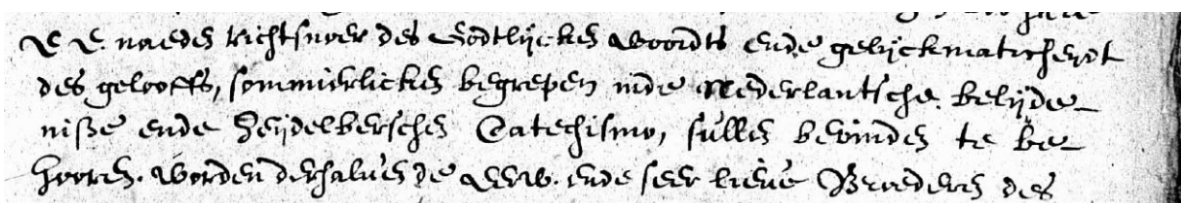 E E. naeden richtsnoer des Godtlijcken woordts ende gelijckmaticheydt
des geloofs, sommierlicken begrepen inde Nederlantsche Belijde-
nisse ende Heijdelberschen Catechismo, sullen bevinden te be-
hooren. Worden derhalven de Eerw. ende seer lieve Broederen des